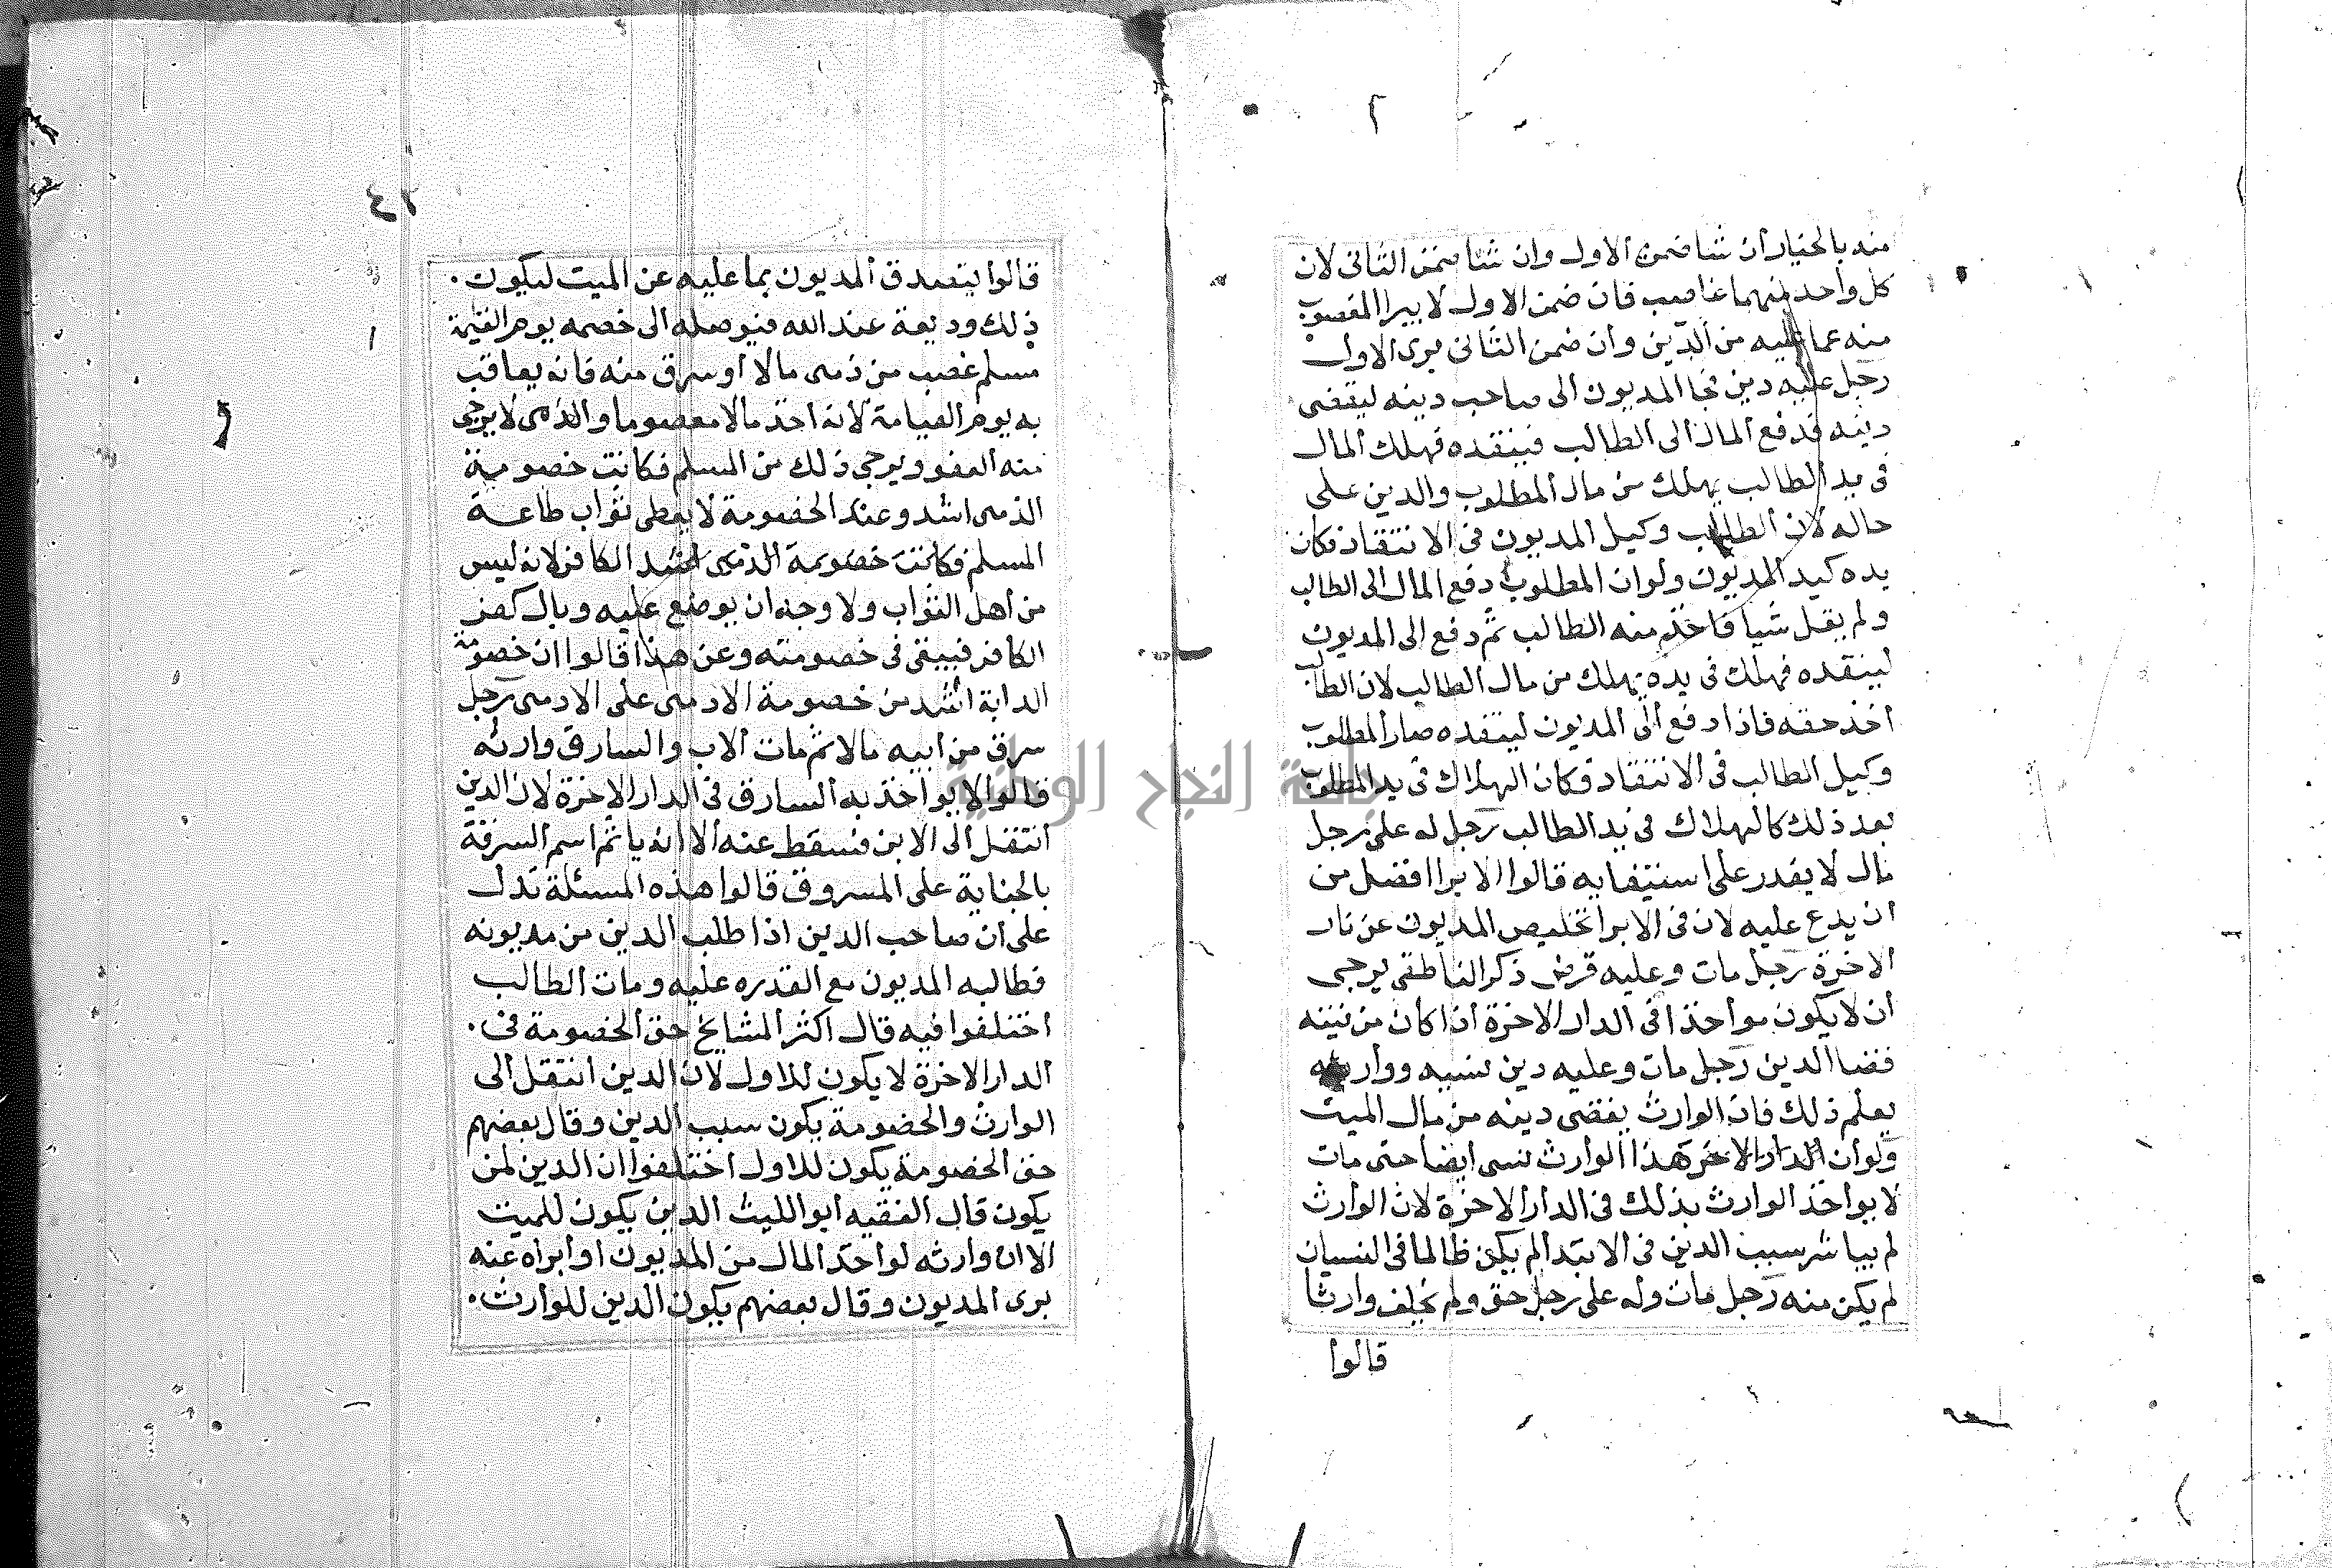 ٢
منه بالخيار ان شا ضمن الاول وان شا ضمن الثانى لان
كل واحد منهما غاصب فان ضمن الاول لا يبرا المغصوب
منه عما عليه من الدين وان ضمن الثانى برى الاول
رجل عليه دين فجا المديون الى صاحب دينه ليقضى
دينه فدفع المال الى الطالب فينقده فهلك المال
فى يد الطالب يهلك من مال المطلوب والدين على
حاله لان الطالب وكيل المديون فى الانتقاد فكان
يده كيد المديون ولو ان المطلوب دفع المال الى الطالب
ولم يقل شيا فاخذ منه الطالب ثم دفع الى المديون
لينقده فهلك فى يده يهلك من مال الطالب لان الطالب
اخذ حقه فاذا دفع الى المديون لينقده صار المطلوب
وكيل الطالب فى الانتقاد فكان الهلاك فى يد المطلوب
بعد ذلك كالهلاك فى يد الطالب رجل له على رجل
مال لا يقدر على استيفايه قالوا الابرا افضل من
ان يدع عليه لان فى الابرا تخليص المديون عن نار
الاخرة رجل مات وعليه قرض ذكر الناطفى يرجى
ان لا يكون مواخذا فى الدار الاخرة اذا كان من نيته
قضا الدين رجل مات وعليه دين نسيه ووارثه
يعلم ذلك فان الوارث يقضى دينه من مال الميت
ولو ان الدار الاخرة هذا الوارث نسى ايضا حتى مات
لا يواخذ الوارث بذلك فى الدار الاخرة لان الوارث
لم يباشر سبب الدين فى الابتدا لم يكن ظالما فى النسيان
لم يكن منه رجل مات وله على رجل حق ولم يخلف وارثا
قالوا
٢٤
قالوا يتصدق المديون بما عليه عن الميت ليكون
ذلك وديعة عند الله فيوصله الى خصمه يوم القيمة
مسلم غصب من ذمى مالا او سرق منه فانه يعاقب
به يوم القيامة لانه اخذ مالا معصوما والذمى لا يرجى
منه العفو ويرجى ذلك من المسلم فكانت خصومة
الذمى اشد وعند الخصومة لا يعطى ثواب طاعة
المسلم فكانت خصومة الذمى اشد الكافر لانه ليس
من اهل الثواب ولا وجه ان يوضع عليه وبال كفر
الكافر فيبقى فى خصومته وعن هذا قالوا ان خصومة
الدابة اشد من خصومة الادمى على الادمى رجل
سرق من ابيه مالا ثم مات الاب والسارق وارثه
قالوا لا يواخذ به السارق فى الدار الاخرة لان الدين
انتقل الى الابن فسقط عنه الا انه ياثم اسم السرقة
بالجناية على المسروق قالوا هذه المسئلة تدل
على ان صاحب الدين اذا طلب الدين من مديونه
فطالبه المديون مع القدره عليه ومات الطالب
اختلفوا فيه قال اكثر المشايخ حق الخصومة فى
الدار الاخرة لا يكون للاول لان الدين انتقل الى
الوارث والخصومة يكون سبب الدين وقال بعضهم
حق الخصومة يكون للاول اختلفوا ان الدين لمن
يكون قال الفقيه ابو الليث الدين يكون للميت
الا ان وارثه لو اخذ المال من المديون او ابراه عنه
برى المديون وقال بعضهم يكون الدين للوارث
جامعة النجاح الوطنية